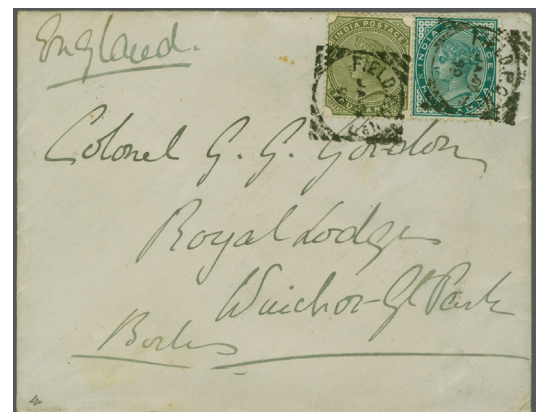 England.
INDIA POSTAGE
INDIA POSTAGE
FIELD P.O.
FIELD
Colonel G. G. Gordon
Royal Lodge
Windsor Gt Park
Berks